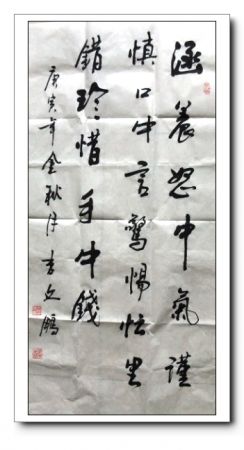 涵養怒中氣謹
慎口中言驚惕忙里
錯珍惜手中錢
庚寅年金秋月李鵬